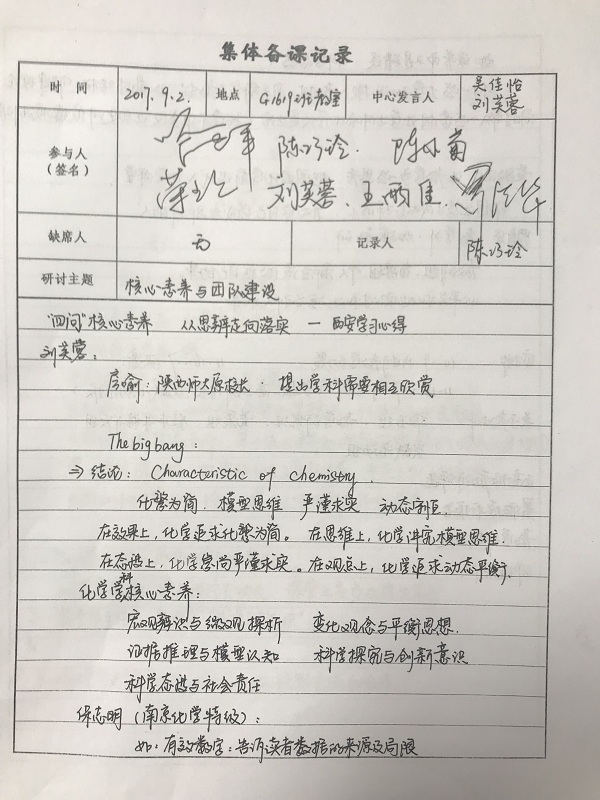 集体备课记录
时间 2017.9.2. 地点 G1619班教室 中心发言人 吴佳怡 刘芙蓉
参与人（签名） 陈巧玲. 陈小菊
刘芙蓉. 王丽佳.
缺席人 无 记录人 陈巧玲
研讨主题 核心素养与团队建设
"四问"核心素养 从思辨走向落实 — 西安学习心得
刘芙蓉：
房喻：陕西师大原校长. 提出学科需要相互欣赏
The big bang：
⇒ 结论： Characteristic of chemistry.
化繁为简. 模型思维 严谨求实 动态制衡.
在效果上，化学追求化繁为简。在思维上，化学讲究模型思维.
在态度上，化学崇尚严谨求实。在观点上，化学追求动态平衡.
化学学科核心素养：
宏观辨识与微观探析 变化观念与平衡思想.
证据推理与模型认知 科学探究与创新意识
科学态度与社会责任
保志明（南京化学特级）：
如：有效数字：告诉读者数据的来源及局限